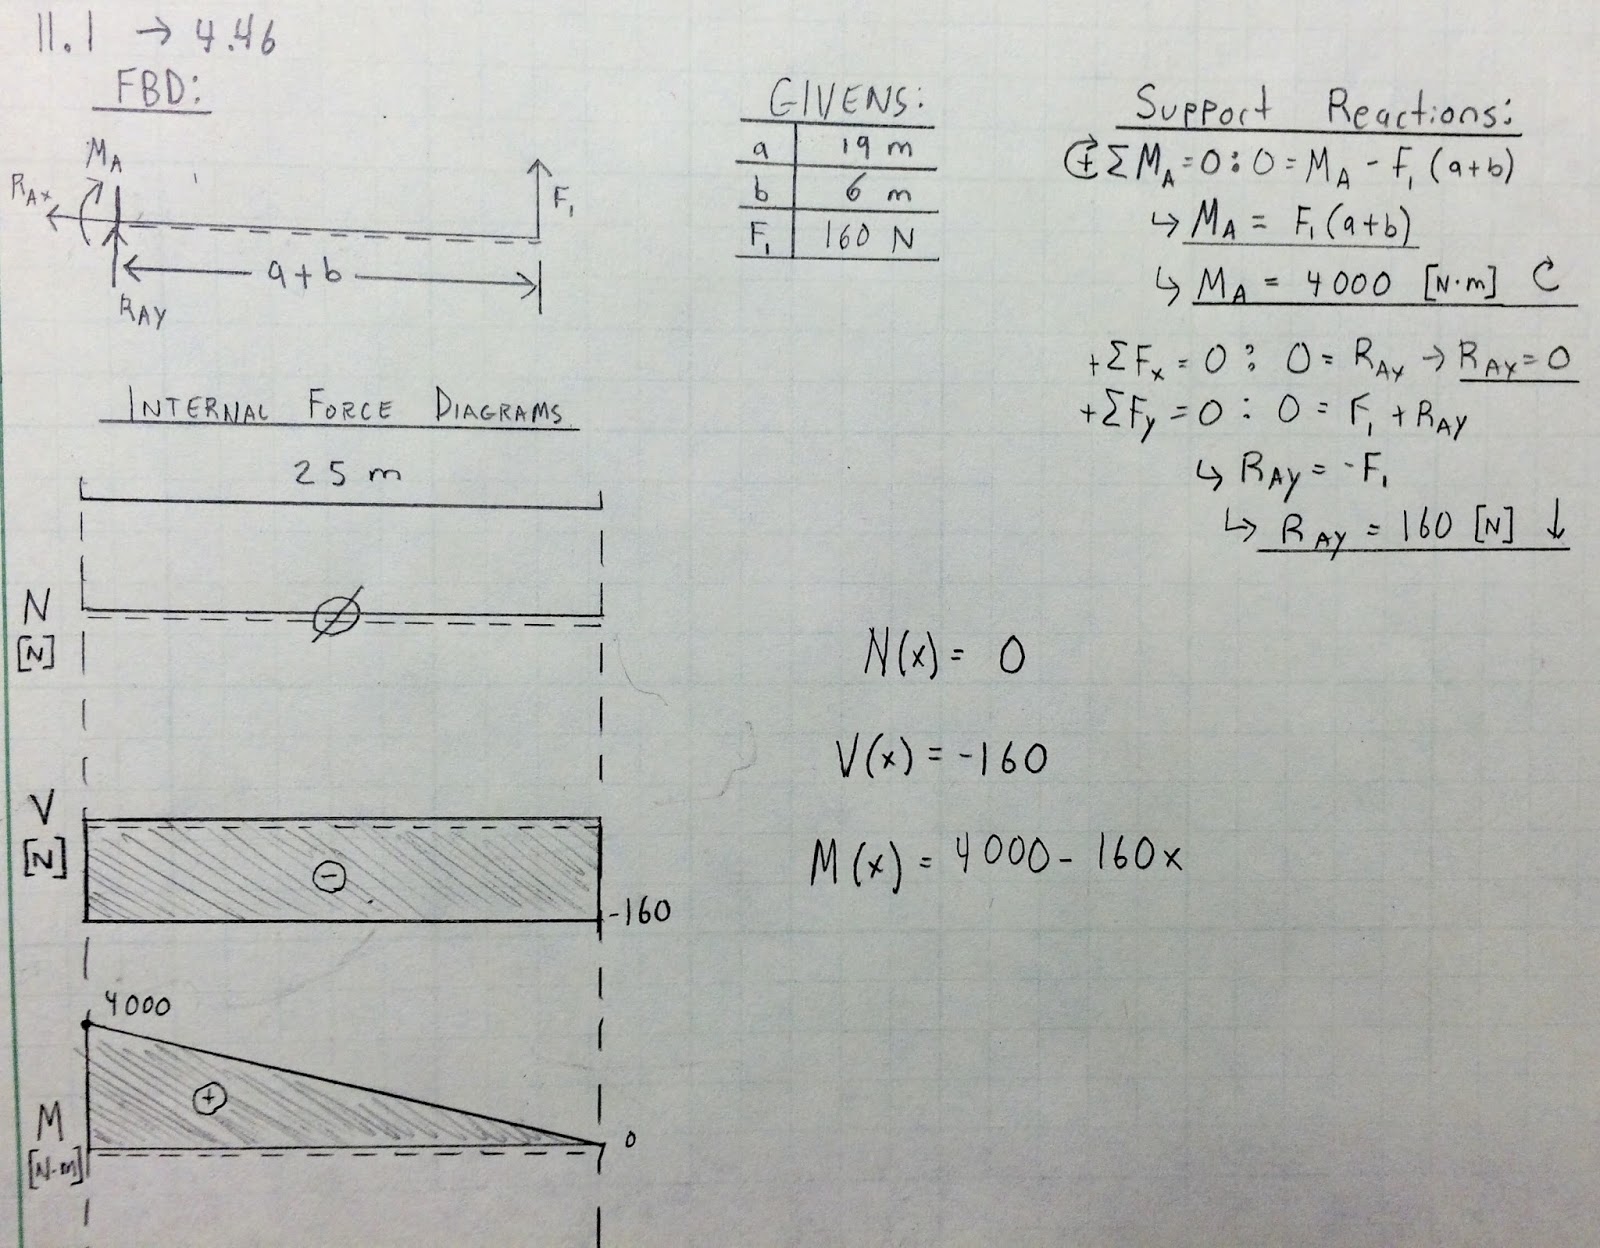 11.1 → 4.46
FBD:
M_A
R_Ax
F₁
a+b
R_AY
GIVENS:
a 19 m
b 6 m
F₁ 160 N
Support Reactions:
+ ΣM_A = 0 : 0 = M_A - F₁ (a+b)
↳ M_A = F₁ (a+b)
↳ M_A = 4000 [N·m] ↻
+ΣF_x = 0 : 0 = R_Ax → R_Ax = 0
+ΣF_y = 0 : 0 = F₁ + R_AY
↳ R_AY = -F₁
↳ R_AY = 160 [N] ↓
INTERNAL FORCE DIAGRAMS
25 m
N
[N]
∅
N(x) = 0
V
[N]
−
-160
V(x) = -160
M(x) = 4000 - 160x
4000
+
M
[N·m]
0